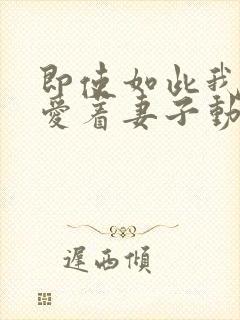 即使如此我
爱着妻子動
遲西傾